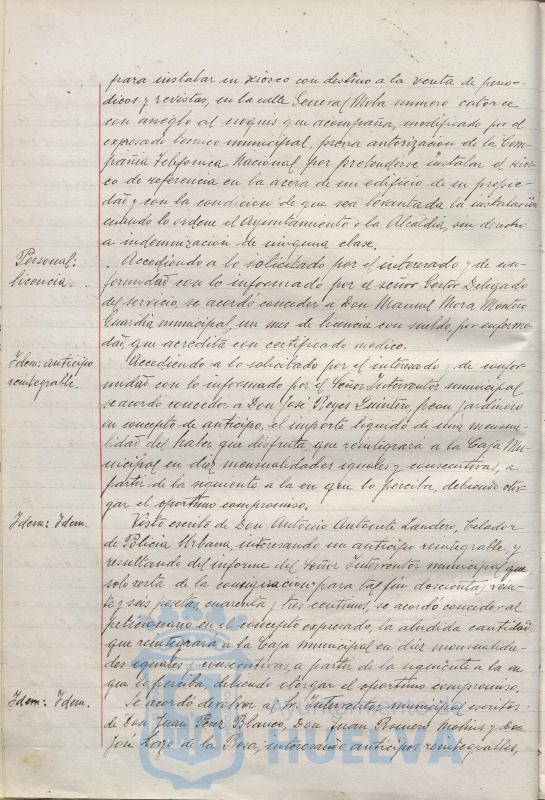 para instalar un kiosco con destino a la venta de perió-
dicos y revistas, en la calle General Mola numero catorce
con arreglo al croquis que acompaña, modificado por el
expresado tecnico municipal, previa autorización de la Com-
pañia Telefonica Nacional por pretenderse instalar el kios-
co de referencia en la acera de un edificio de su propie-
dad y con la condición de que sea levantada la instalación
cuando lo ordene el Ayuntamiento o la Alcaldia, sin derecho
a indemnización de ninguna clase.
Personal:
licencia.
Accediendo a lo solicitado por el interesado y de con-
formidad con lo informado por el señor Gestor Delegado
del servicio, se acordó conceder a Don Manuel Mora
Guardia municipal, un mes de licencia con sueldo por enferme-
dad, que acredita con certificado medico.
Idem: anticipo
reintegrable.
Accediendo a lo solicitado por el interesado y de confor-
midad con lo informado por el Señor Interventor municipal
se acordó conceder a Don José Reyes Quintero, peon jardinero
en concepto de anticipo, el importe liquido de una mensua-
lidad del haber que disfruta, que reintegrará a la Caja Mu-
nicipal en diez mensualidades iguales y consecutivas, a
partir de la siguiente a la en que lo perciba, debiendo otor-
gar el oportuno compromiso.
Idem: Idem.
Visto escrito de Don Antonio Landero, Celador
de Policia Urbana, interesando un anticipo reintegrable, y
resultando del informe del Señor Interventor municipal que
solo resta de la consignacion para tal fin doscientas vein-
te y seis pesetas cuarenta y tres centimos, se acordó conceder al
peticionario en el concepto expresado, la aludida cantidad
que reintegrará a la Caja municipal en diez mensualida-
des iguales y consecutivas, a partir de la siguiente a la en
que la perciba, debiendo otorgar el oportuno compromiso.
Idem: Idem.
Se acordó devolver a Sr. Interventor municipal escritos
de Don Juan Perez Blanco, Don Juan Romero y Don
José Lazo de la Rosa, interesando anticipos reintegrables,
Ayuntamiento de
HUELVA